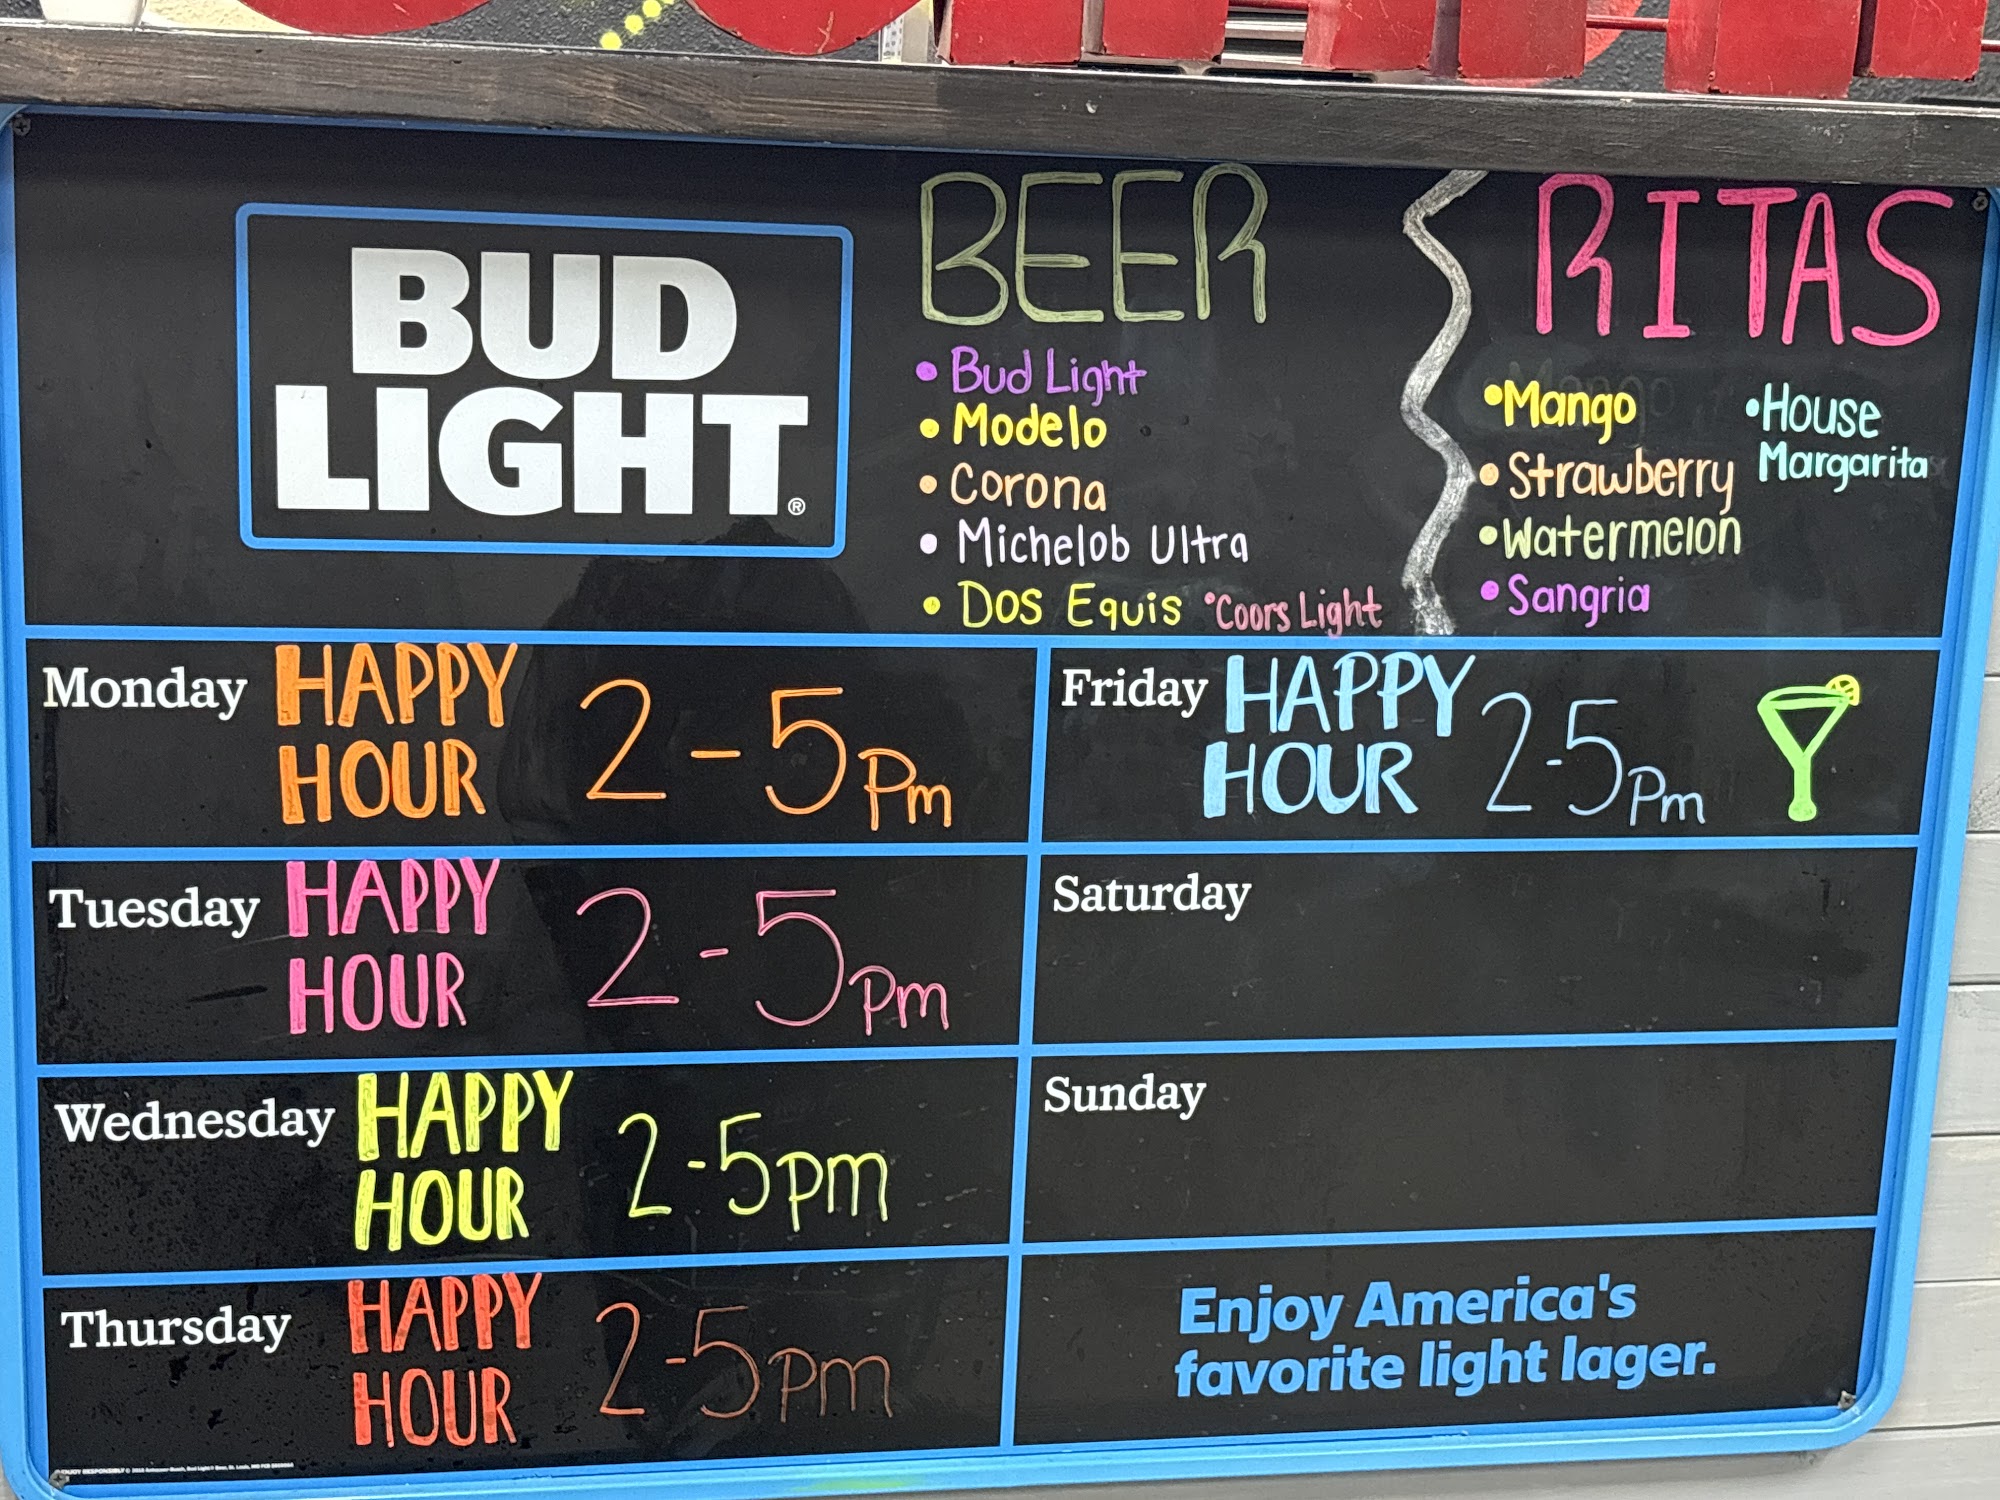 BUD
LIGHT®
BEER
• Bud Light
• Modelo
• Corona
• Michelob Ultra
• Dos Equis • Coors Light
RITAS
• Mango
• Strawberry
• Watermelon
• Sangria
• House
Margarita
Monday HAPPY
HOUR 2-5pm
Tuesday HAPPY
HOUR 2-5pm
Wednesday HAPPY
HOUR 2-5pm
Thursday HAPPY
HOUR 2-5pm
Friday HAPPY
HOUR 2-5pm
Saturday
Sunday
Enjoy America's
favorite light lager.